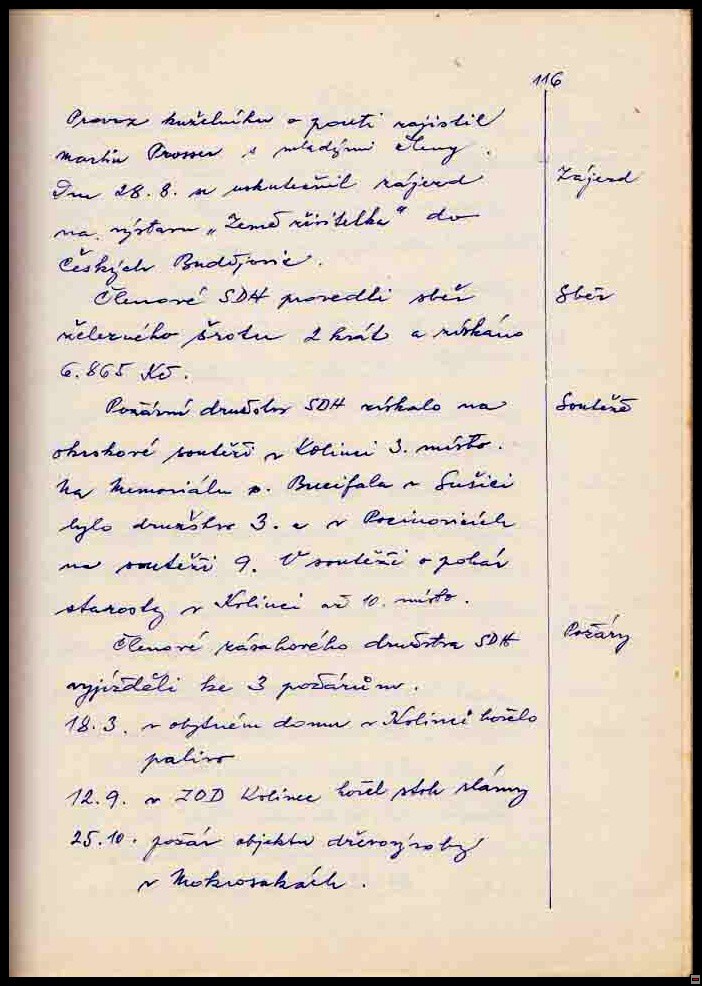 116
Provoz kuželníku o pouti zajistil
Martin Prosser s mladými členy.
Dne 28.8. se uskutečnil zájezd
Zájezd
na výstavu „Země živitelka" do
Českých Budějovic.
Členové SDH provedli sběr
Sběr
železného šrotu 2 krát a získáno
6.865 Kč.
Požární družstvo SDH získalo na
Soutěže
okrskové soutěži v Kolinci 3. místo.
Na Memoriálu p. Bucifala v Sušici
bylo družstvo 3. a v Pocinovicích
na soutěži 9. V soutěži o pohár
starosty v Kolinci až 10. místo.
Členové zásahového družstva SDH
Požáry
vyjížděli ke 3 požárům.
18.3. v obytném domu v Kolinci hořelo
palivo
12.9. v ZOD Kolinec hořel stoh slámy
25.10. požár objektu dřevovýroby
v Mokrosukách.